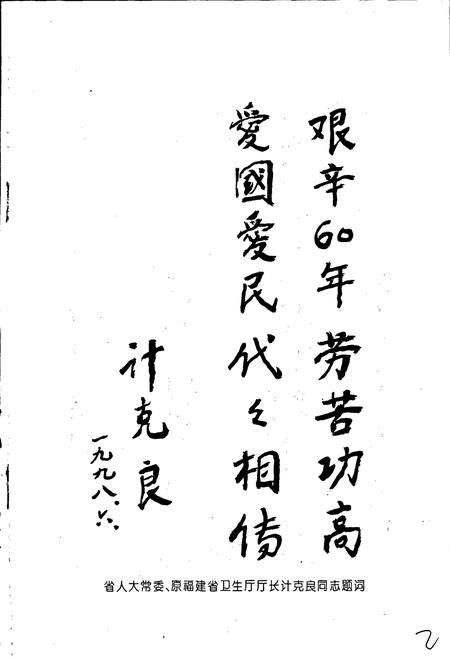 艰辛60年劳苦功高
爱國爱民代々相传
计克良
一九九八.六.
省人大常委、原福建省卫生厅厅长计克良同志题词
2